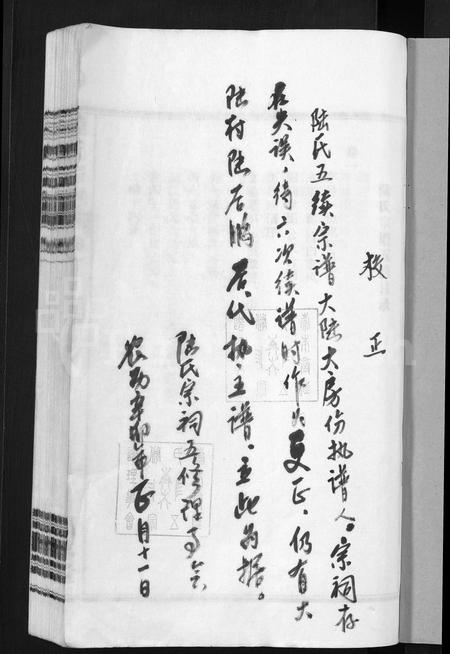 教正
陆氏五续宗谱大陆大房份执谱人。宗祠存
在失误，待六次续谱时作为更正，仍有大
陆村陆居鹏居代执主谱。立此为据。
陆氏宗祠五修理事会
农历辛卯年正月十一日